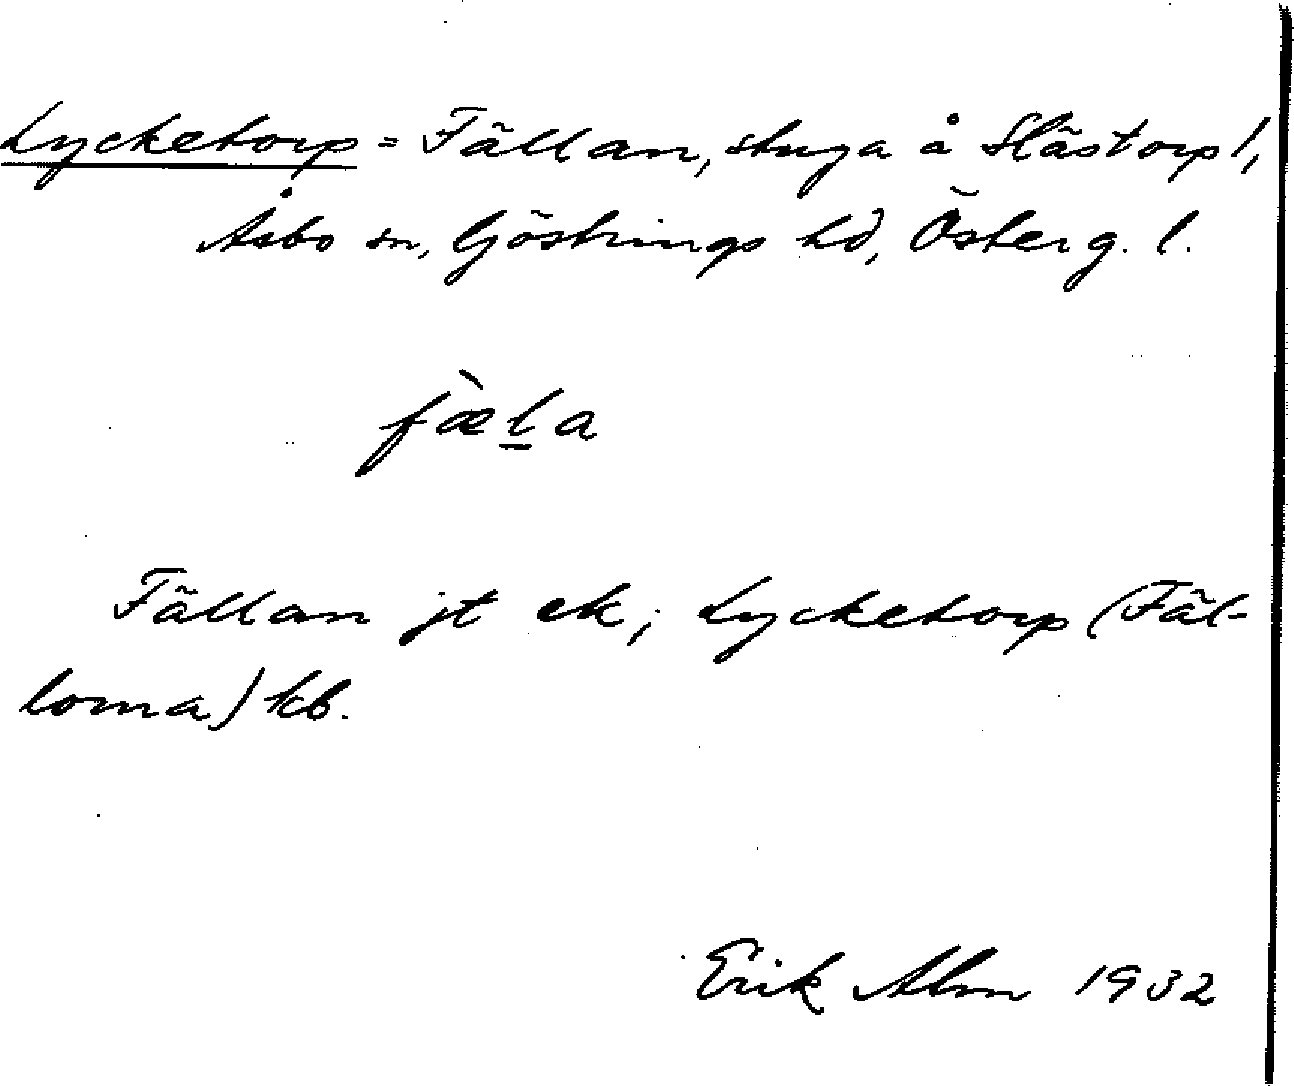 Lycketorp = Fällan, stuga å Slästorp 1,
Åsbo sn, Göstrings hd, Österg. l.
fæ̀l̲a
Fällan jt ek; Lycketorp (Fäl-
lorna) kb.
Erik Alm 1932